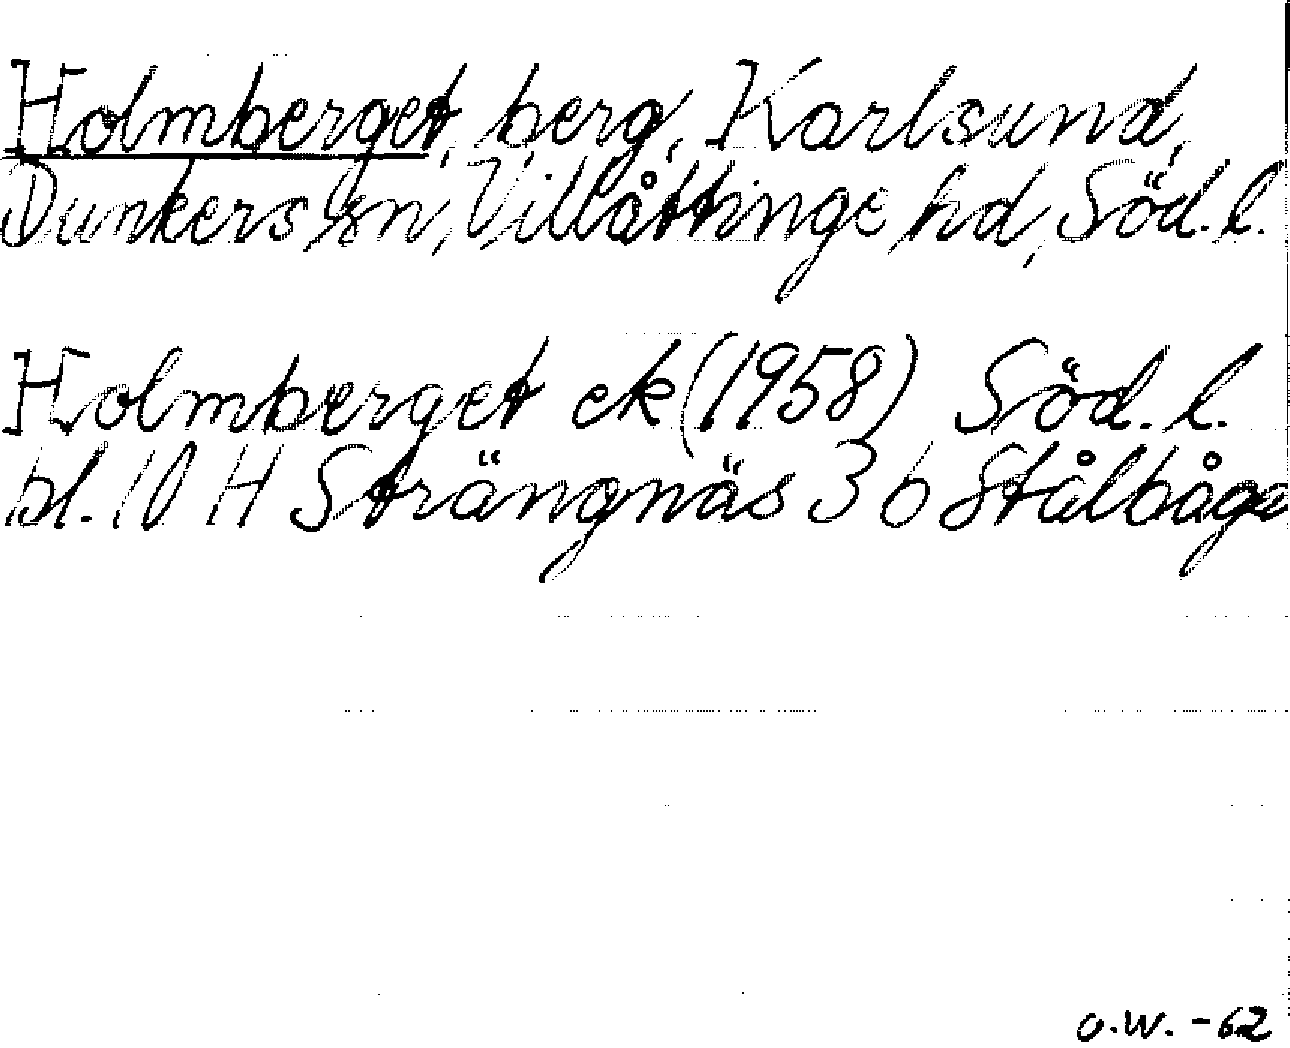 Holmberget, berg, Karlsund,
Dunkers sn, Villåttinge hd, Söd. l.
Holmberget ek (1958) Söd. l.
bl. 10 H Strängnäs 3 b Stålboga
O.W. - 62